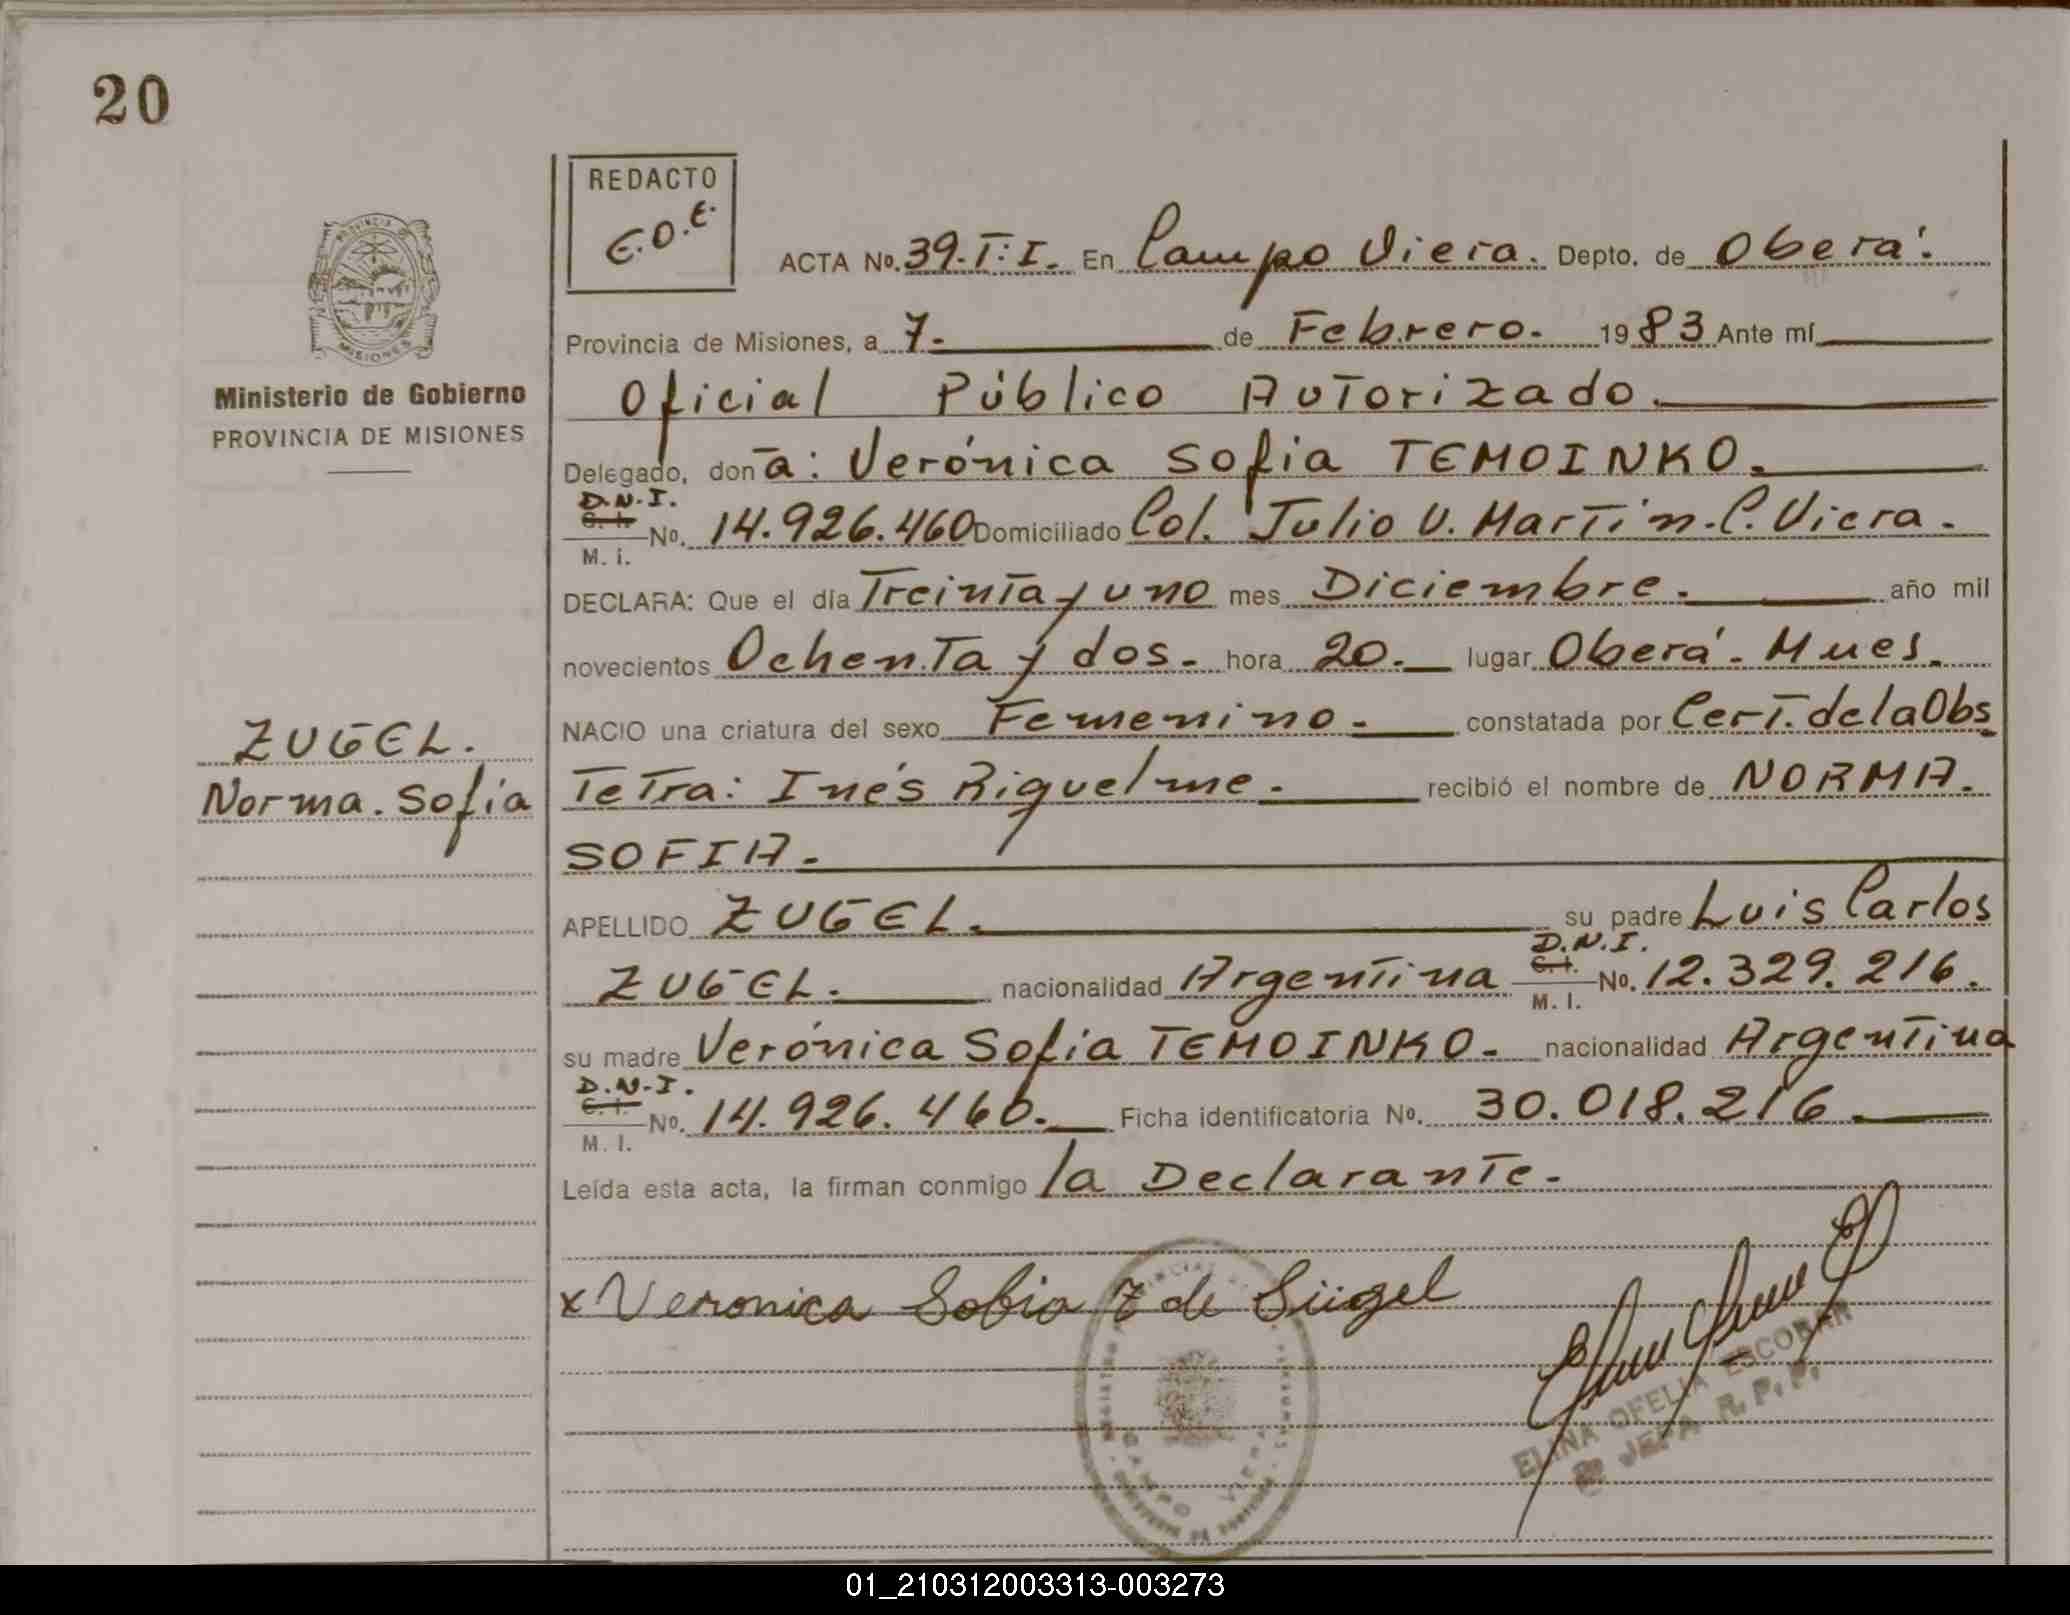 20
REDACTO
E.O.E.
ACTA No. 39.T:I. En Campo Viera. Depto. de Oberá.
Provincia de Misiones, a 7. de Febrero. 1983 Ante mí
Oficial Público Autorizado.
Delegado, don a: Verónica Sofia TEMOINKO.
D.N.I.
C. I. No. 14.926.460 Domiciliado Col. Julio U. Martin. C. Viera.
M. I.
DECLARA: Que el día Treinta y uno mes Diciembre. año mil
novecientos Ochenta y dos. hora 20. lugar Oberá. Mnes.
NACIO una criatura del sexo Femenino. constatada por Cert. de la Obs
Tetra: Inés Riquelme. recibió el nombre de NORMA.
SOFIA.
APELLIDO ZUGEL. su padre Luis Carlos
D.N.I.
ZUGEL. nacionalidad Argentina C. I. No. 12.329.216.
M. I.
su madre Verónica Sofia TEMOINKO. nacionalidad Argentina
D.N.I.
C. I. No. 14.926.460. Ficha identificatoria No. 30.018.216.
M. I.
Leída esta acta, la firman conmigo la Declarante.
x Veronica Sofia T de Sügel
ELINA OFELIA ESCOBAR
JEFA R. P. P.
CAMPO VIERA
PROVINCIA DE
MISIONES
Ministerio de Gobierno
PROVINCIA DE MISIONES
ZUGEL.
Norma. Sofia
01_210312003313-003273